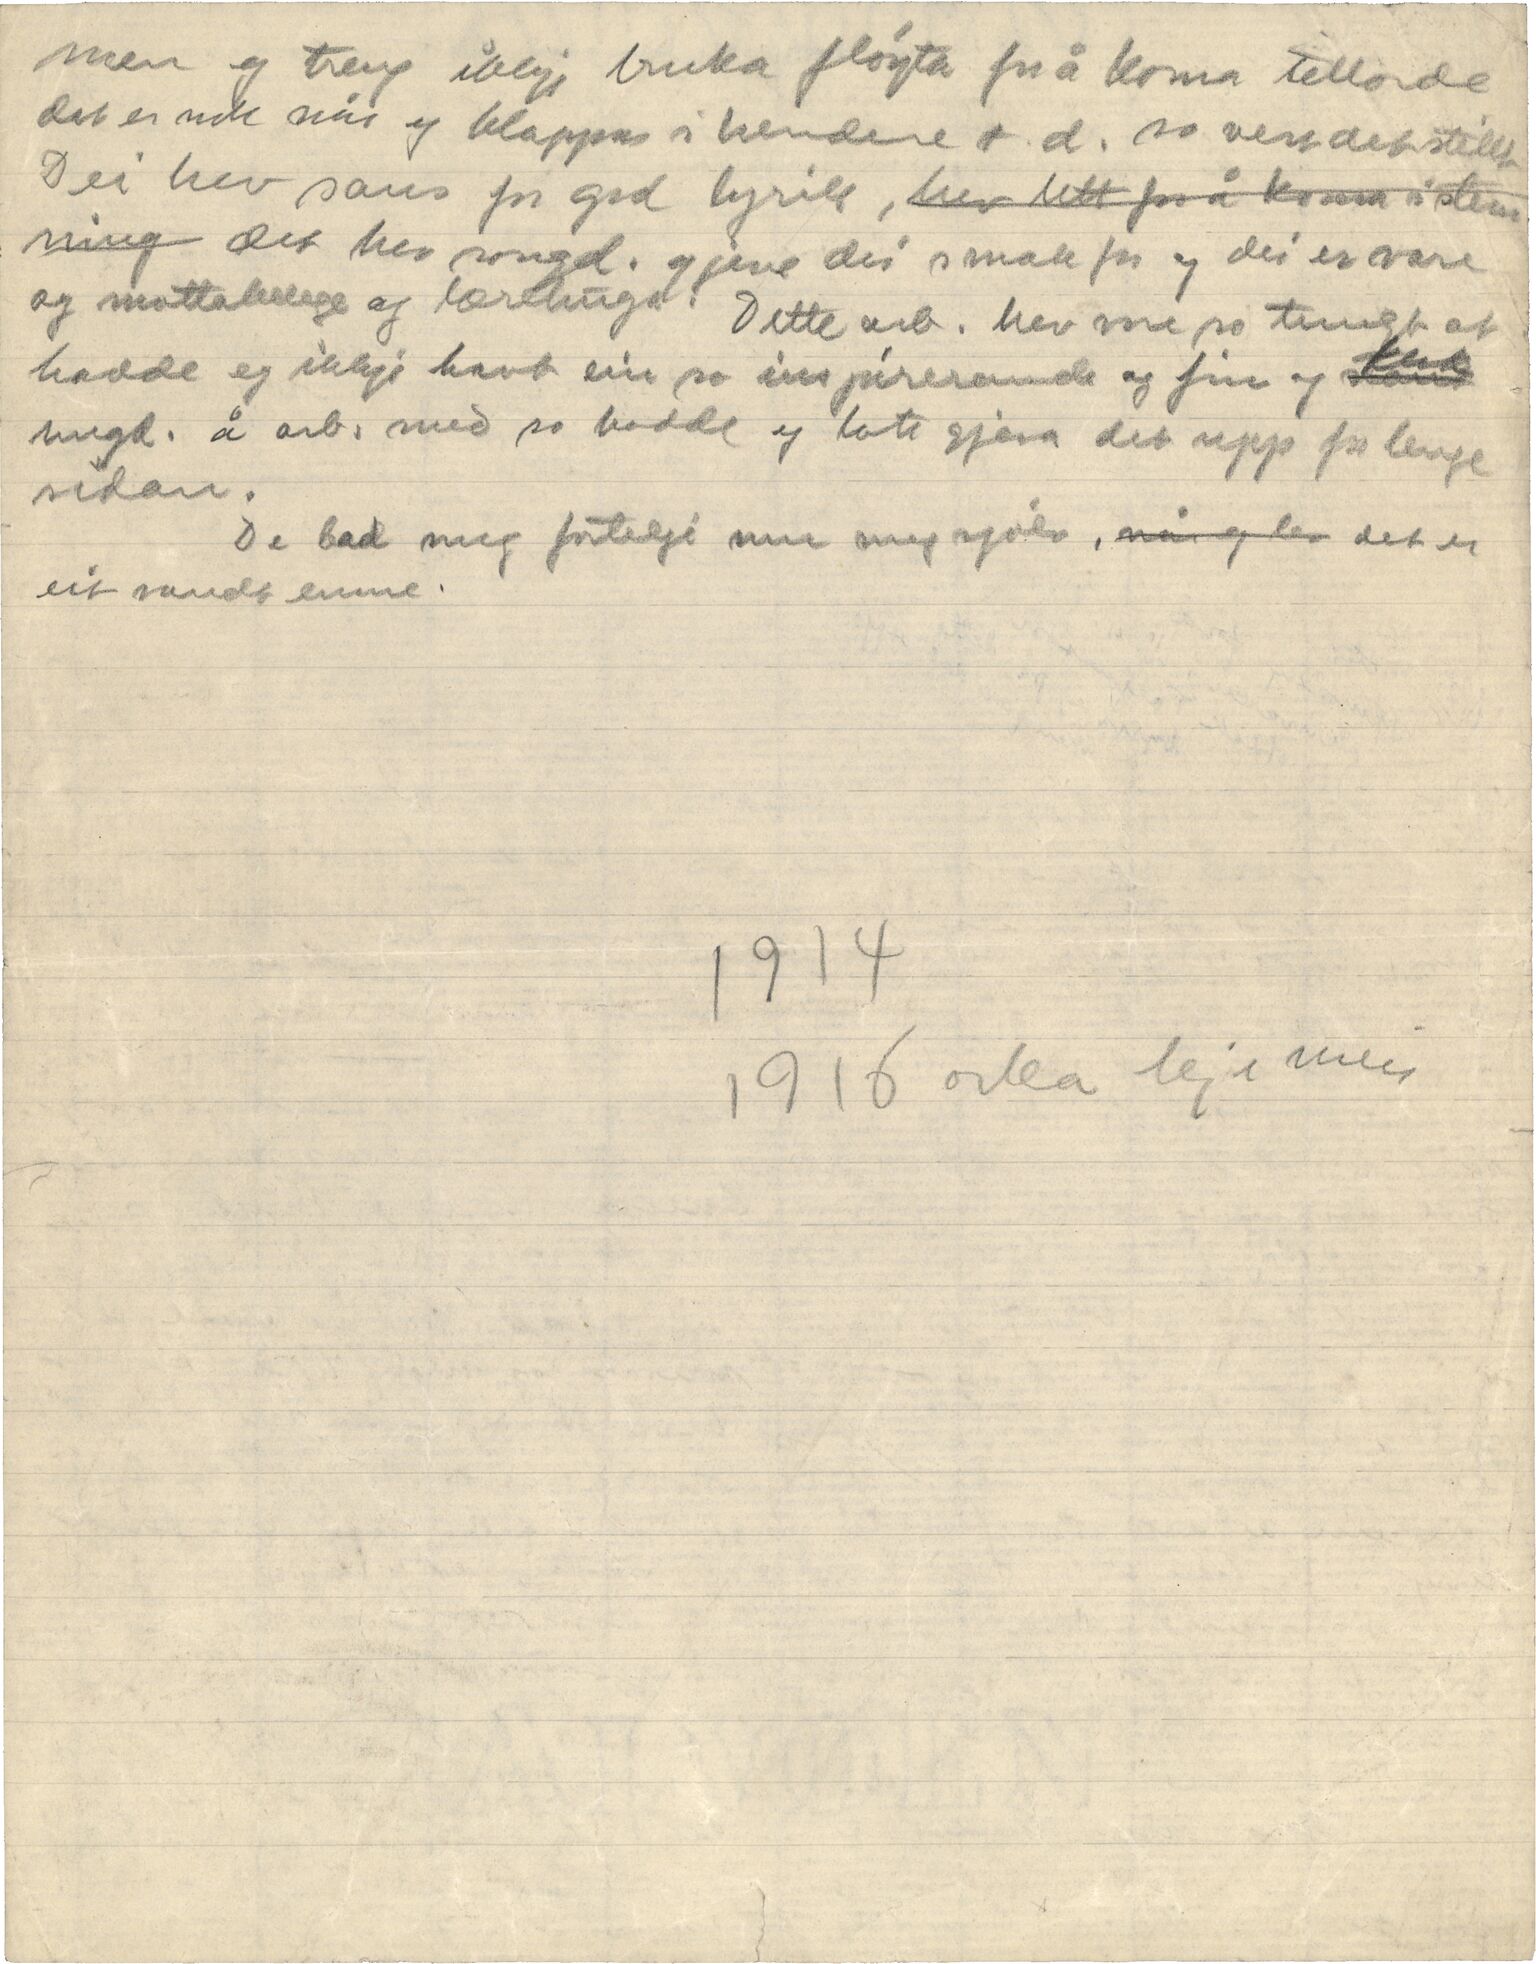 men eg treng ikkje bruka fløyta for å koma tilorde
det er nok når eg klappar i hendene t. d. so vert det stillt
Dei hev sans for god lyrikk, hev lett for å koma i stem
ning det hev songd. gjeve dei smak for og dei er vare
og mottakelege og lærehuga. Dette arb. hev vore so tungt at
hadde eg ikkje havt ein so inspirerande og fin og
ungd. å arb. med so hadde eg late gjeva det upp for lenge
sidan.
De bad meg fortelje um meg sjølv, når eg les det er
eit vandt emne.
1914
1916 orka kje meir